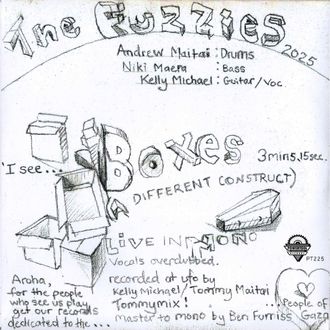 The Fuzzies
2025
Andrew Maitai: Drums
Niki Maera : Bass
Kelly Michael: Guitar/Voc
'I see...
Boxes
3min5.15sec.
(A DIFFERENT CONSTRUCT)
Live in MONO
Vocals overdubbed.
recorded at ufo by
Kelly Michael/Tommy Maitai
Tommymix!
master to mono by Ben Furriss
PT225
Aroha,
for the people
who see us play,
get our records
dedicated to the...
...People of
Gaza